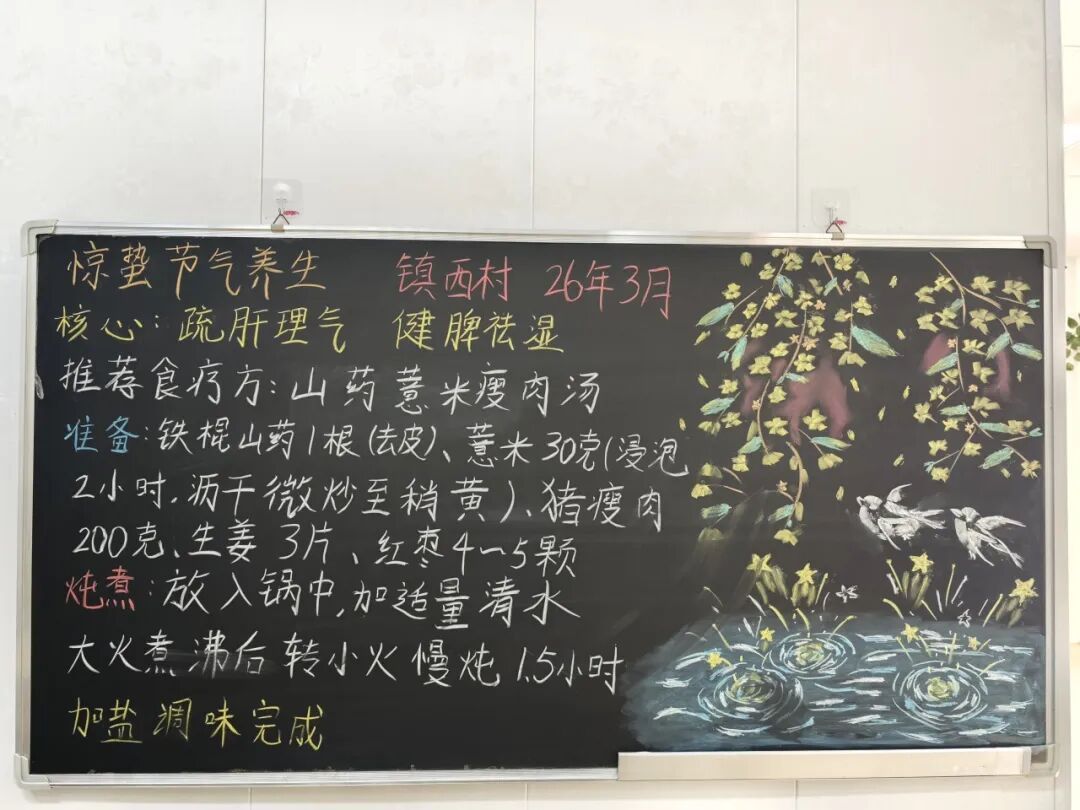 惊蛰节气养生 镇西村 26年3月
核心：疏肝理气 健脾祛湿
推荐食疗方：山药薏米瘦肉汤
准备：铁棍山药1根(去皮)、薏米30克(浸泡
2小时，沥干微炒至稍黄)、猪瘦肉
200克、生姜3片、红枣4~5颗
炖煮：放入锅中,加适量清水
大火煮沸后转小火慢炖1.5小时
加盐调味完成